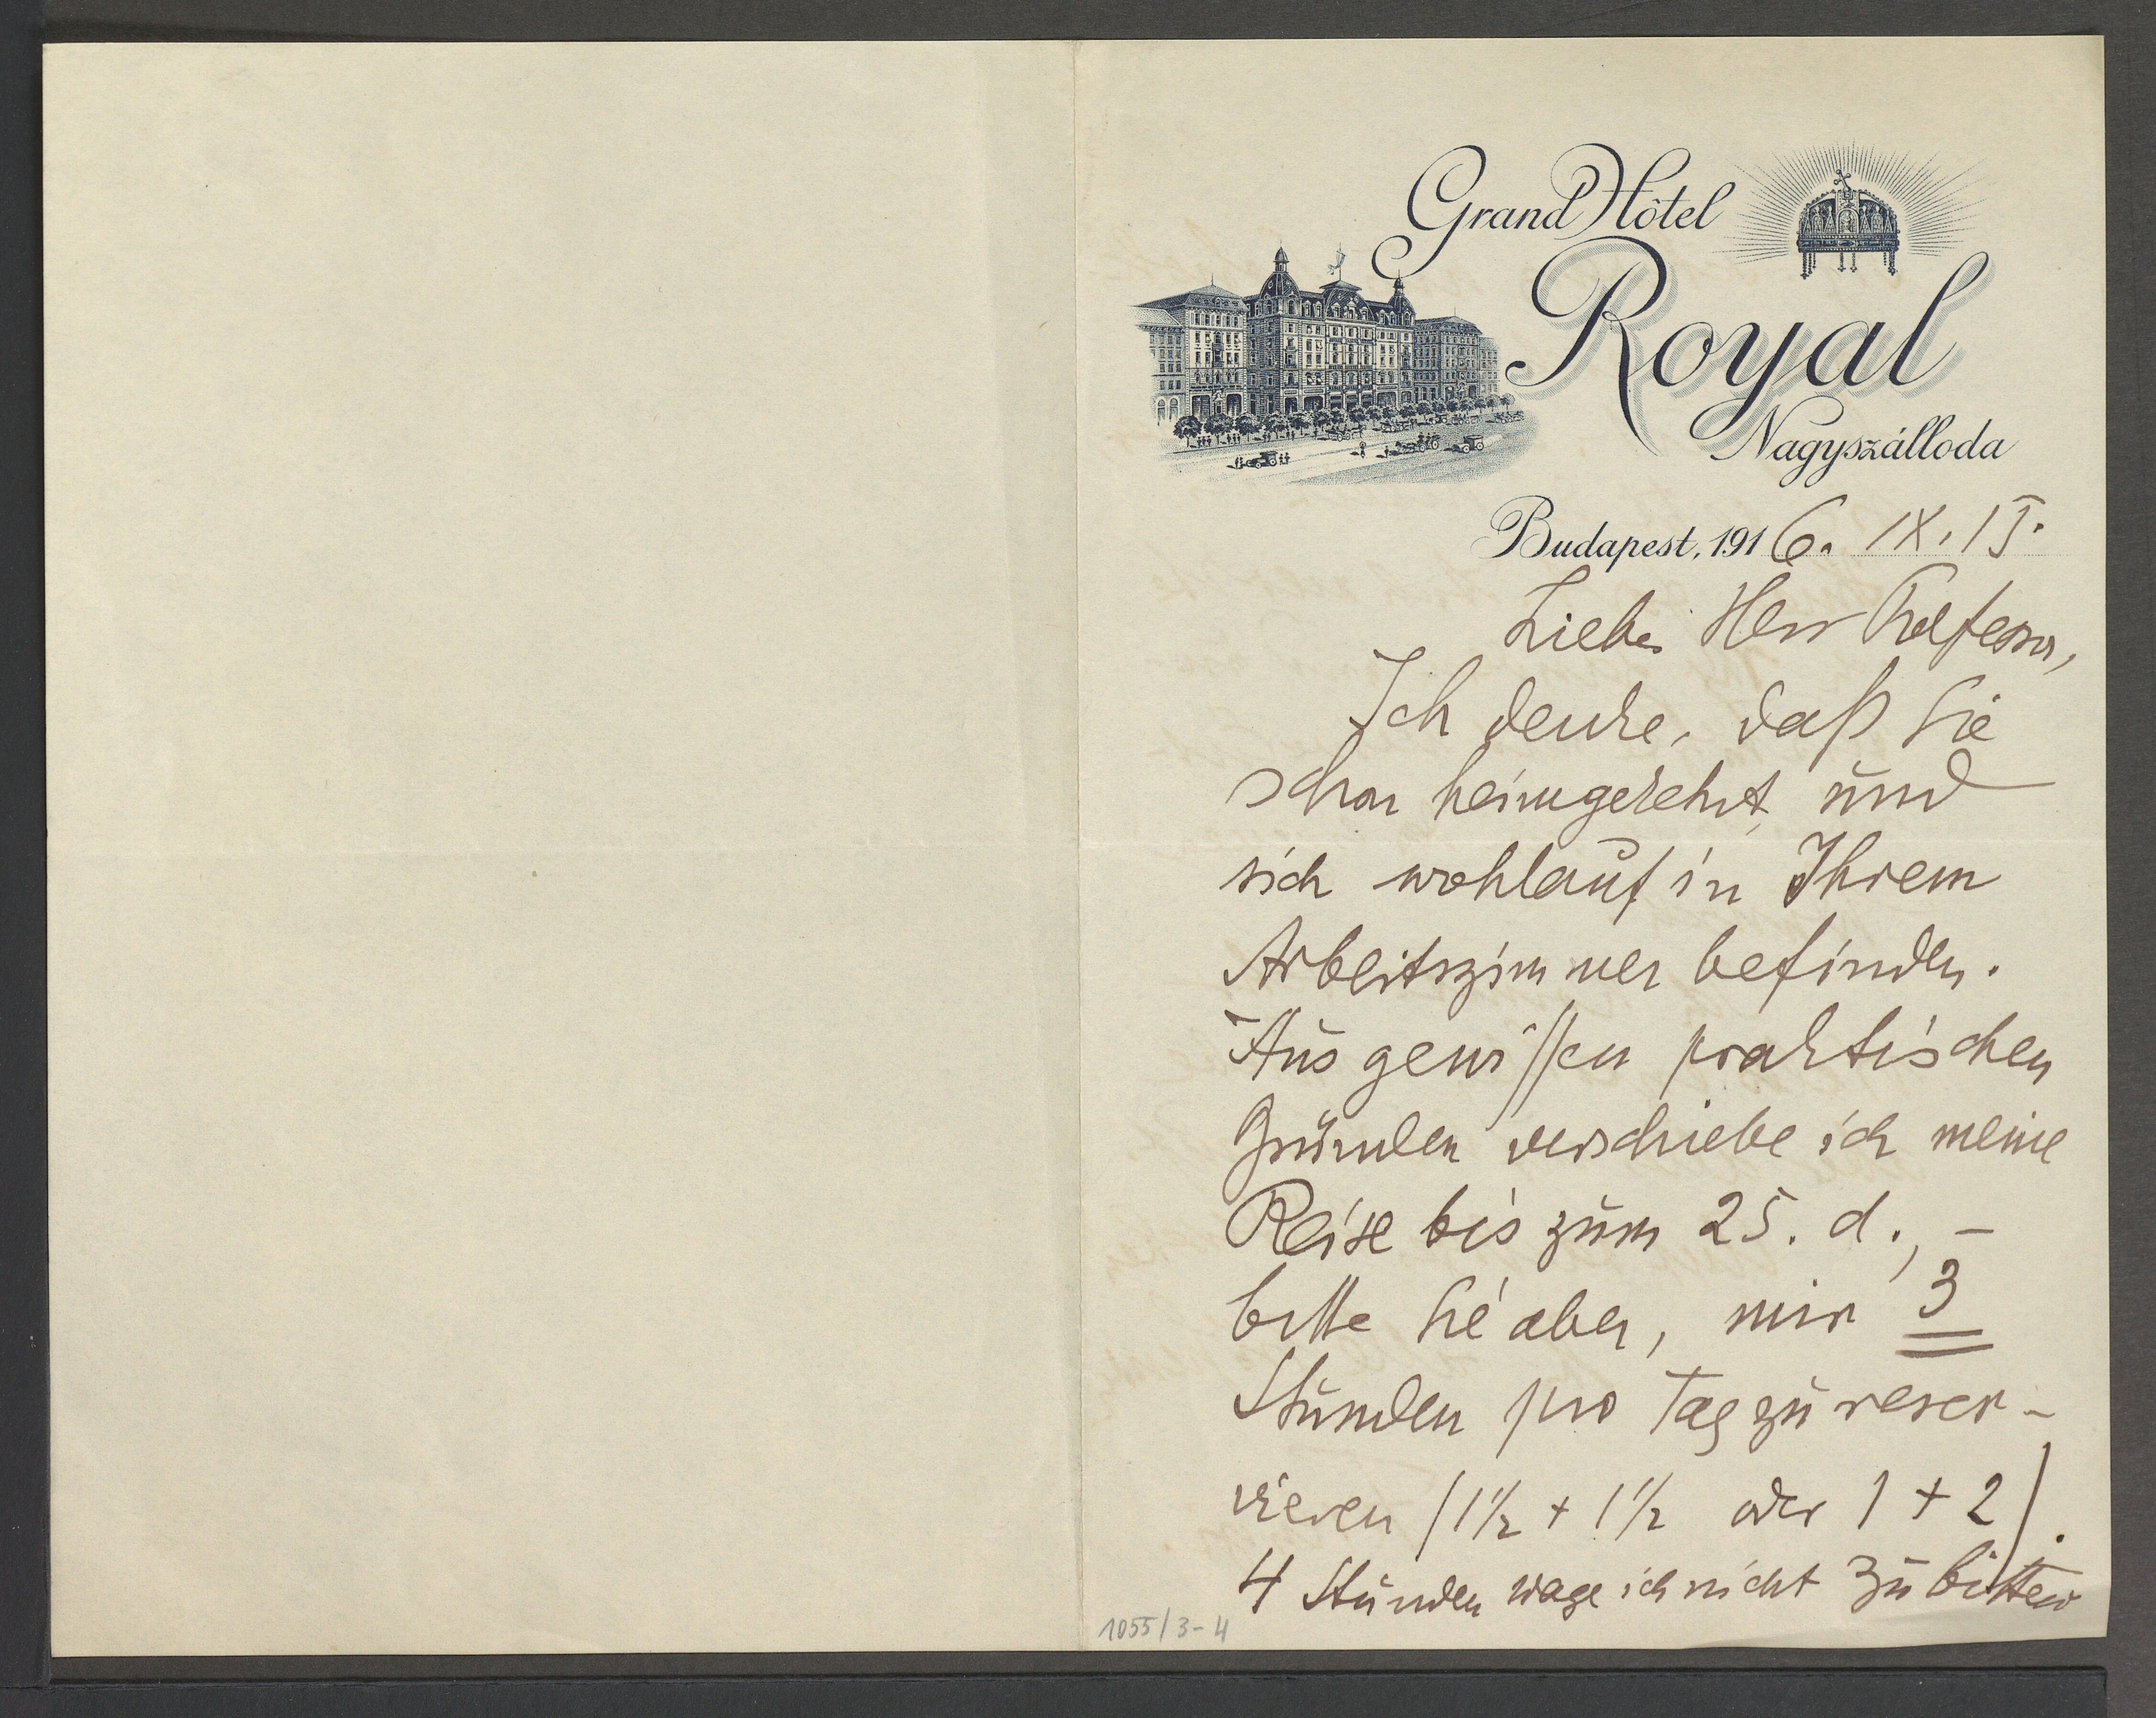 Grand Hôtel
Royal
Nagyszálloda
Budapest, 1916. IX. 15.
Lieber Herr Professor,
Ich denke, daß Sie
schon heimgekehrt und
sich wohlauf in Ihrem
Arbeitszimmer befinden.
Aus gewissen praktischen
Gründen verschiebe ich meine
Reise bis zum 25. d., –
bitte Sie aber, mir 3
Stunden pro Tag zu reser-
vieren (1½ + 1½ oder 1 + 2).
4 Stunden wage ich nicht zu bitten
1055/3-4